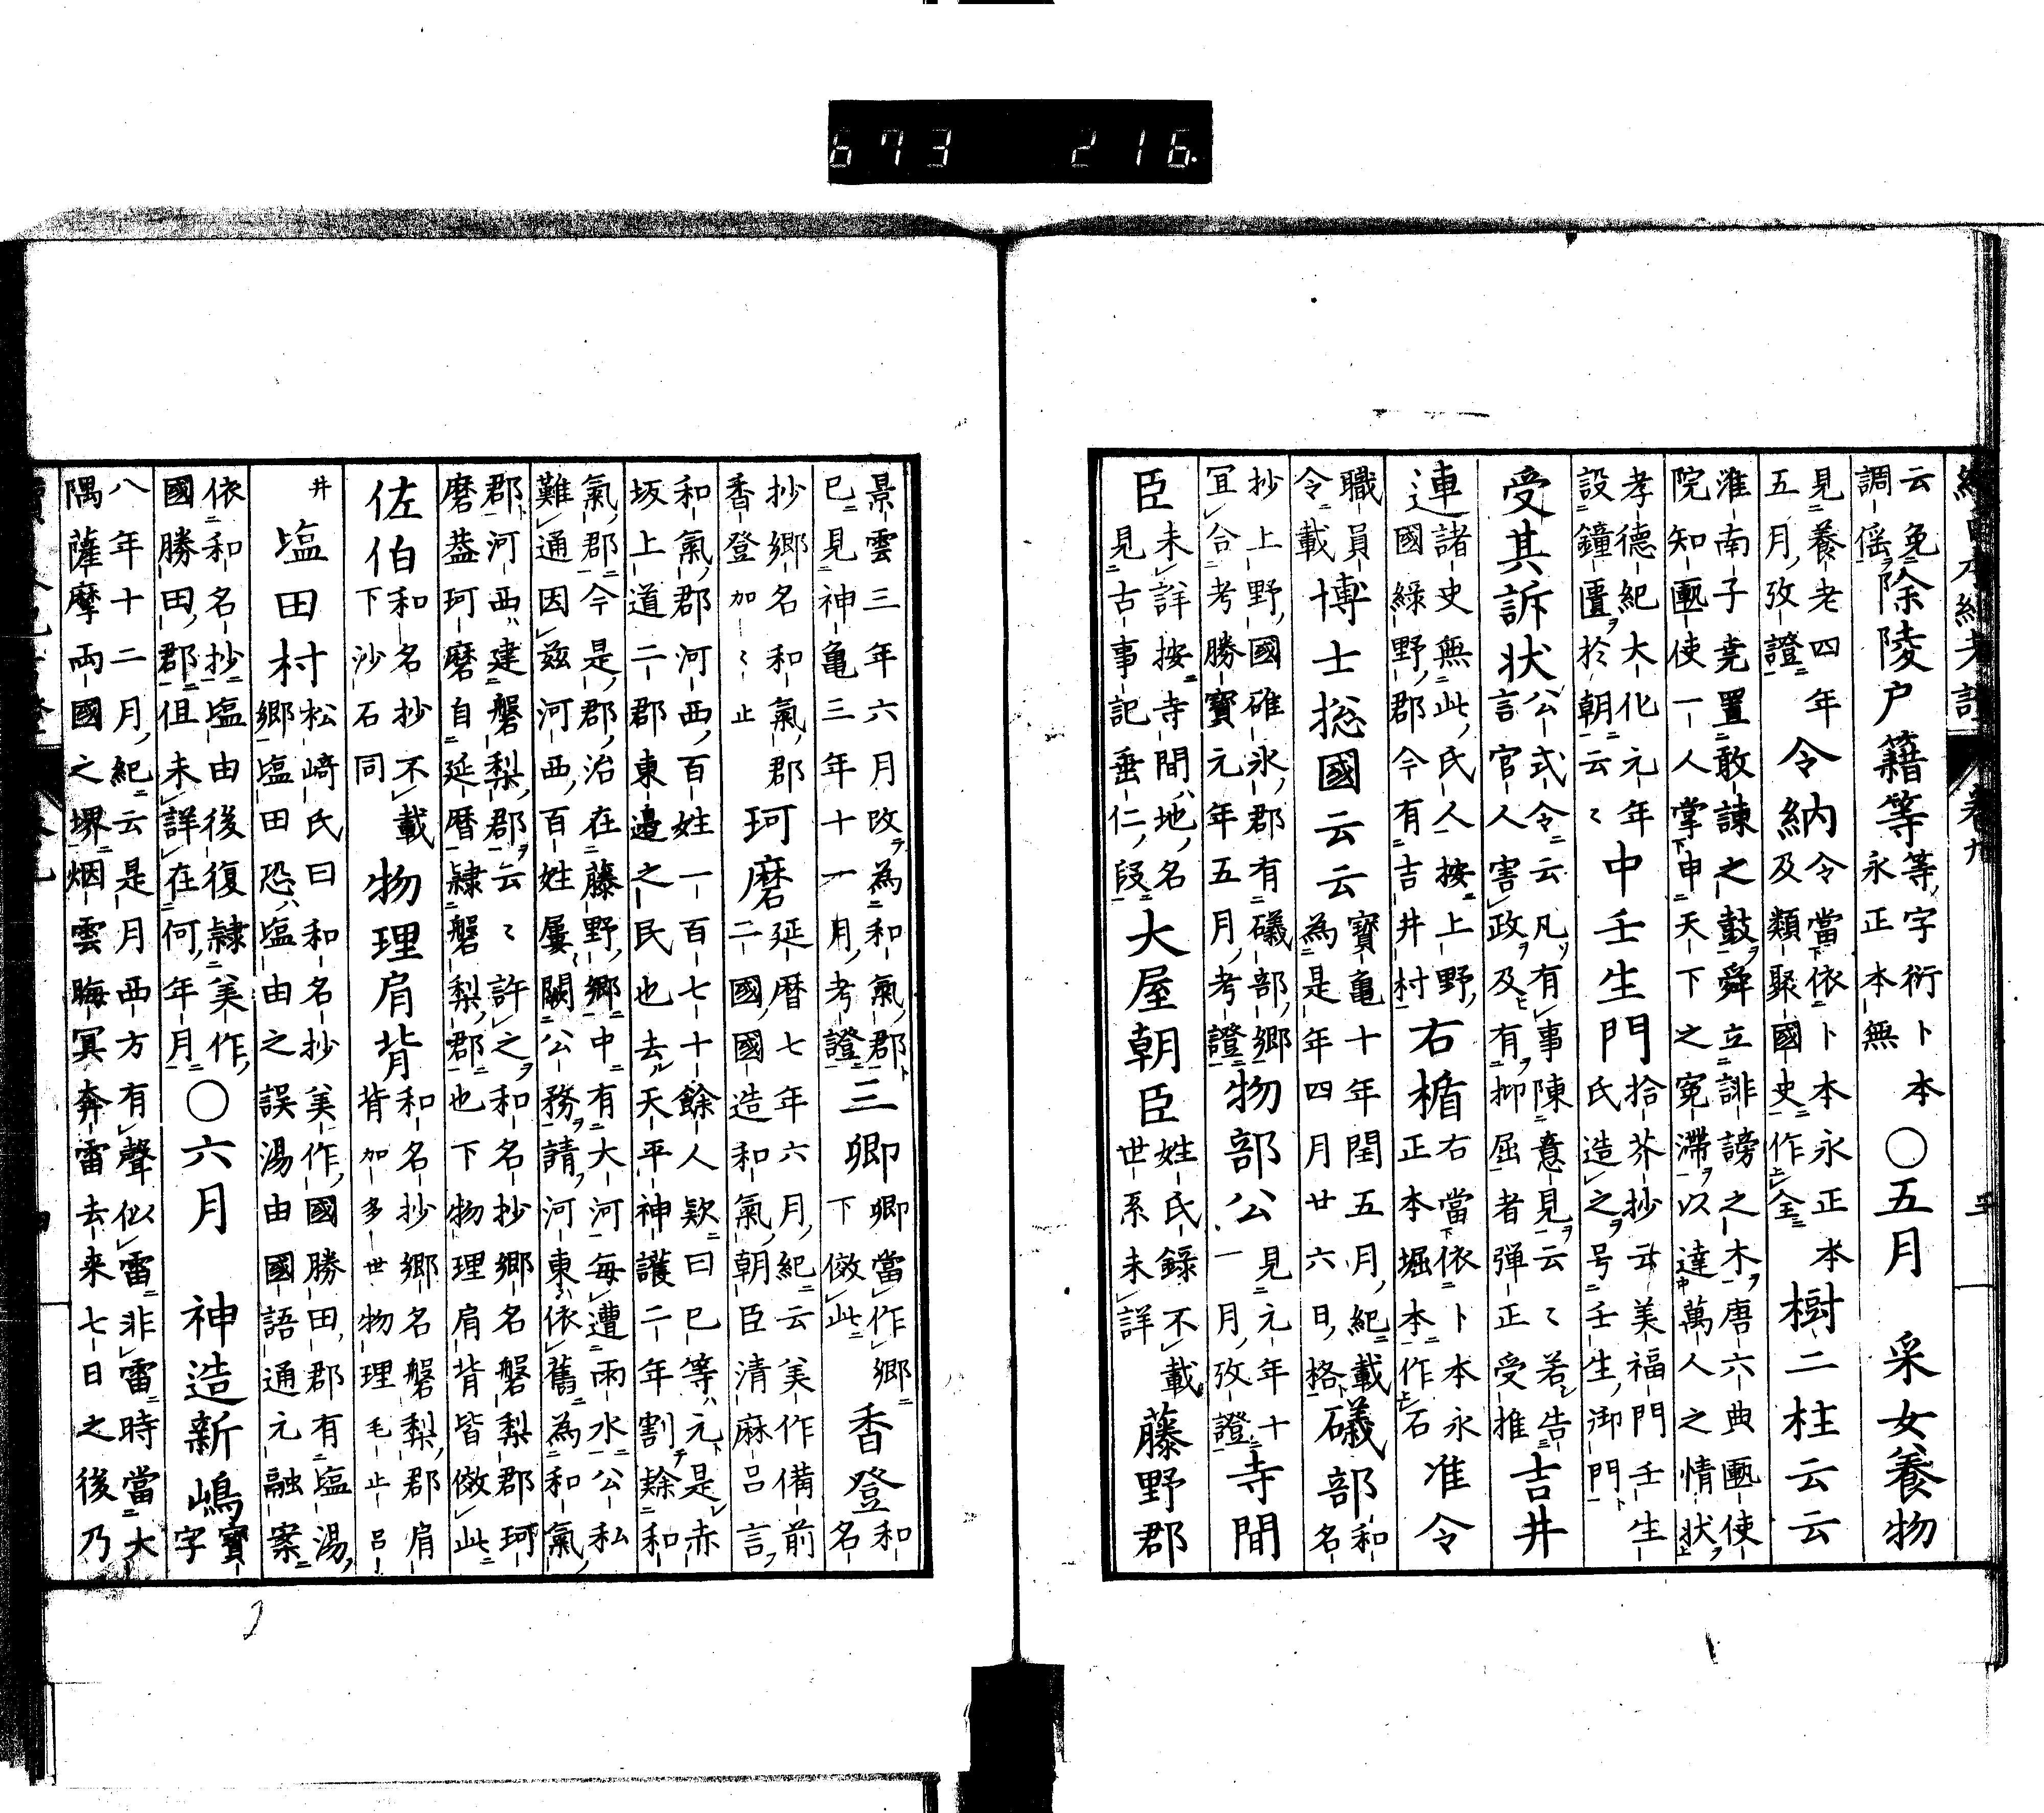 云免調徭除陵戸籍等等字衍卜本永正本無○五月　采女養物
見養老四年五月攷證令納令當依卜本永正本及類聚國史作全樹二柱云云
淮南子尭置敢諫之鼓舜立誹謗之木唐六典匭使院知匭使一人掌申天下之寃滞以達萬人之情状
孝德紀大化元年設鐘匱於朝云〻中壬生門拾芥抄云美福門壬生氏造之号壬生御門
受其訴状公式令云凡有事陳意見云〻若告言官人害政及有抑屈者弾正受推吉井
連諸史無此氏人按上野國緑野郡今有吉井村右楯右當依卜本永正本堀本作石准令
職員令載博士捴國云云寳亀十年閏五月紀載為是年四月廿六日格礒部和名
抄上野國碓氷郡有礒部郷冝合考勝寳元年五月考證物部公見元年十一月攷證寺間
臣未詳按寺間地名見古事記垂仁段大屋朝臣姓氏録不載世系未詳藤野郡
景雲三年六月改為和氣郡巳見神亀三年十一月考證三卿卿當作郷下倣此香登和名
抄郷名和氣郡香登加〻止珂磨延暦七年六月紀云美作備前二國國造和氣朝臣清麻呂言
和氣郡河西百姓一百七十餘人欵曰巳等元是赤坂上道二郡東邊之民也去天平神護二年割隷和
氣郡今是郡治在藤野郷中有大河毎遭雨水公私難通因茲河西百姓屢闕公務請河東依舊為和氣
郡河西建磐梨郡云〻許之和名抄郷名磐梨郡珂磨葢珂磨自延暦隷磐梨郡也下物理肩背皆倣此
佐伯和名抄不載下沙石同物理肩背和名抄郷名磐梨郡肩背加多世物理毛止呂
井塩田村松﨑氏曰和名抄美作國勝田郡有塩湯郷塩田恐塩由之誤湯由國語通元融案
依和名抄塩由後復隷美作國勝田郡但未詳在何年月○六月　神造新嶋寳字
八年十二月紀云是月西方有聲似雷非雷時當大隅薩摩兩國之堺烟雲晦冥奔雷去来七日之後乃
673 216.